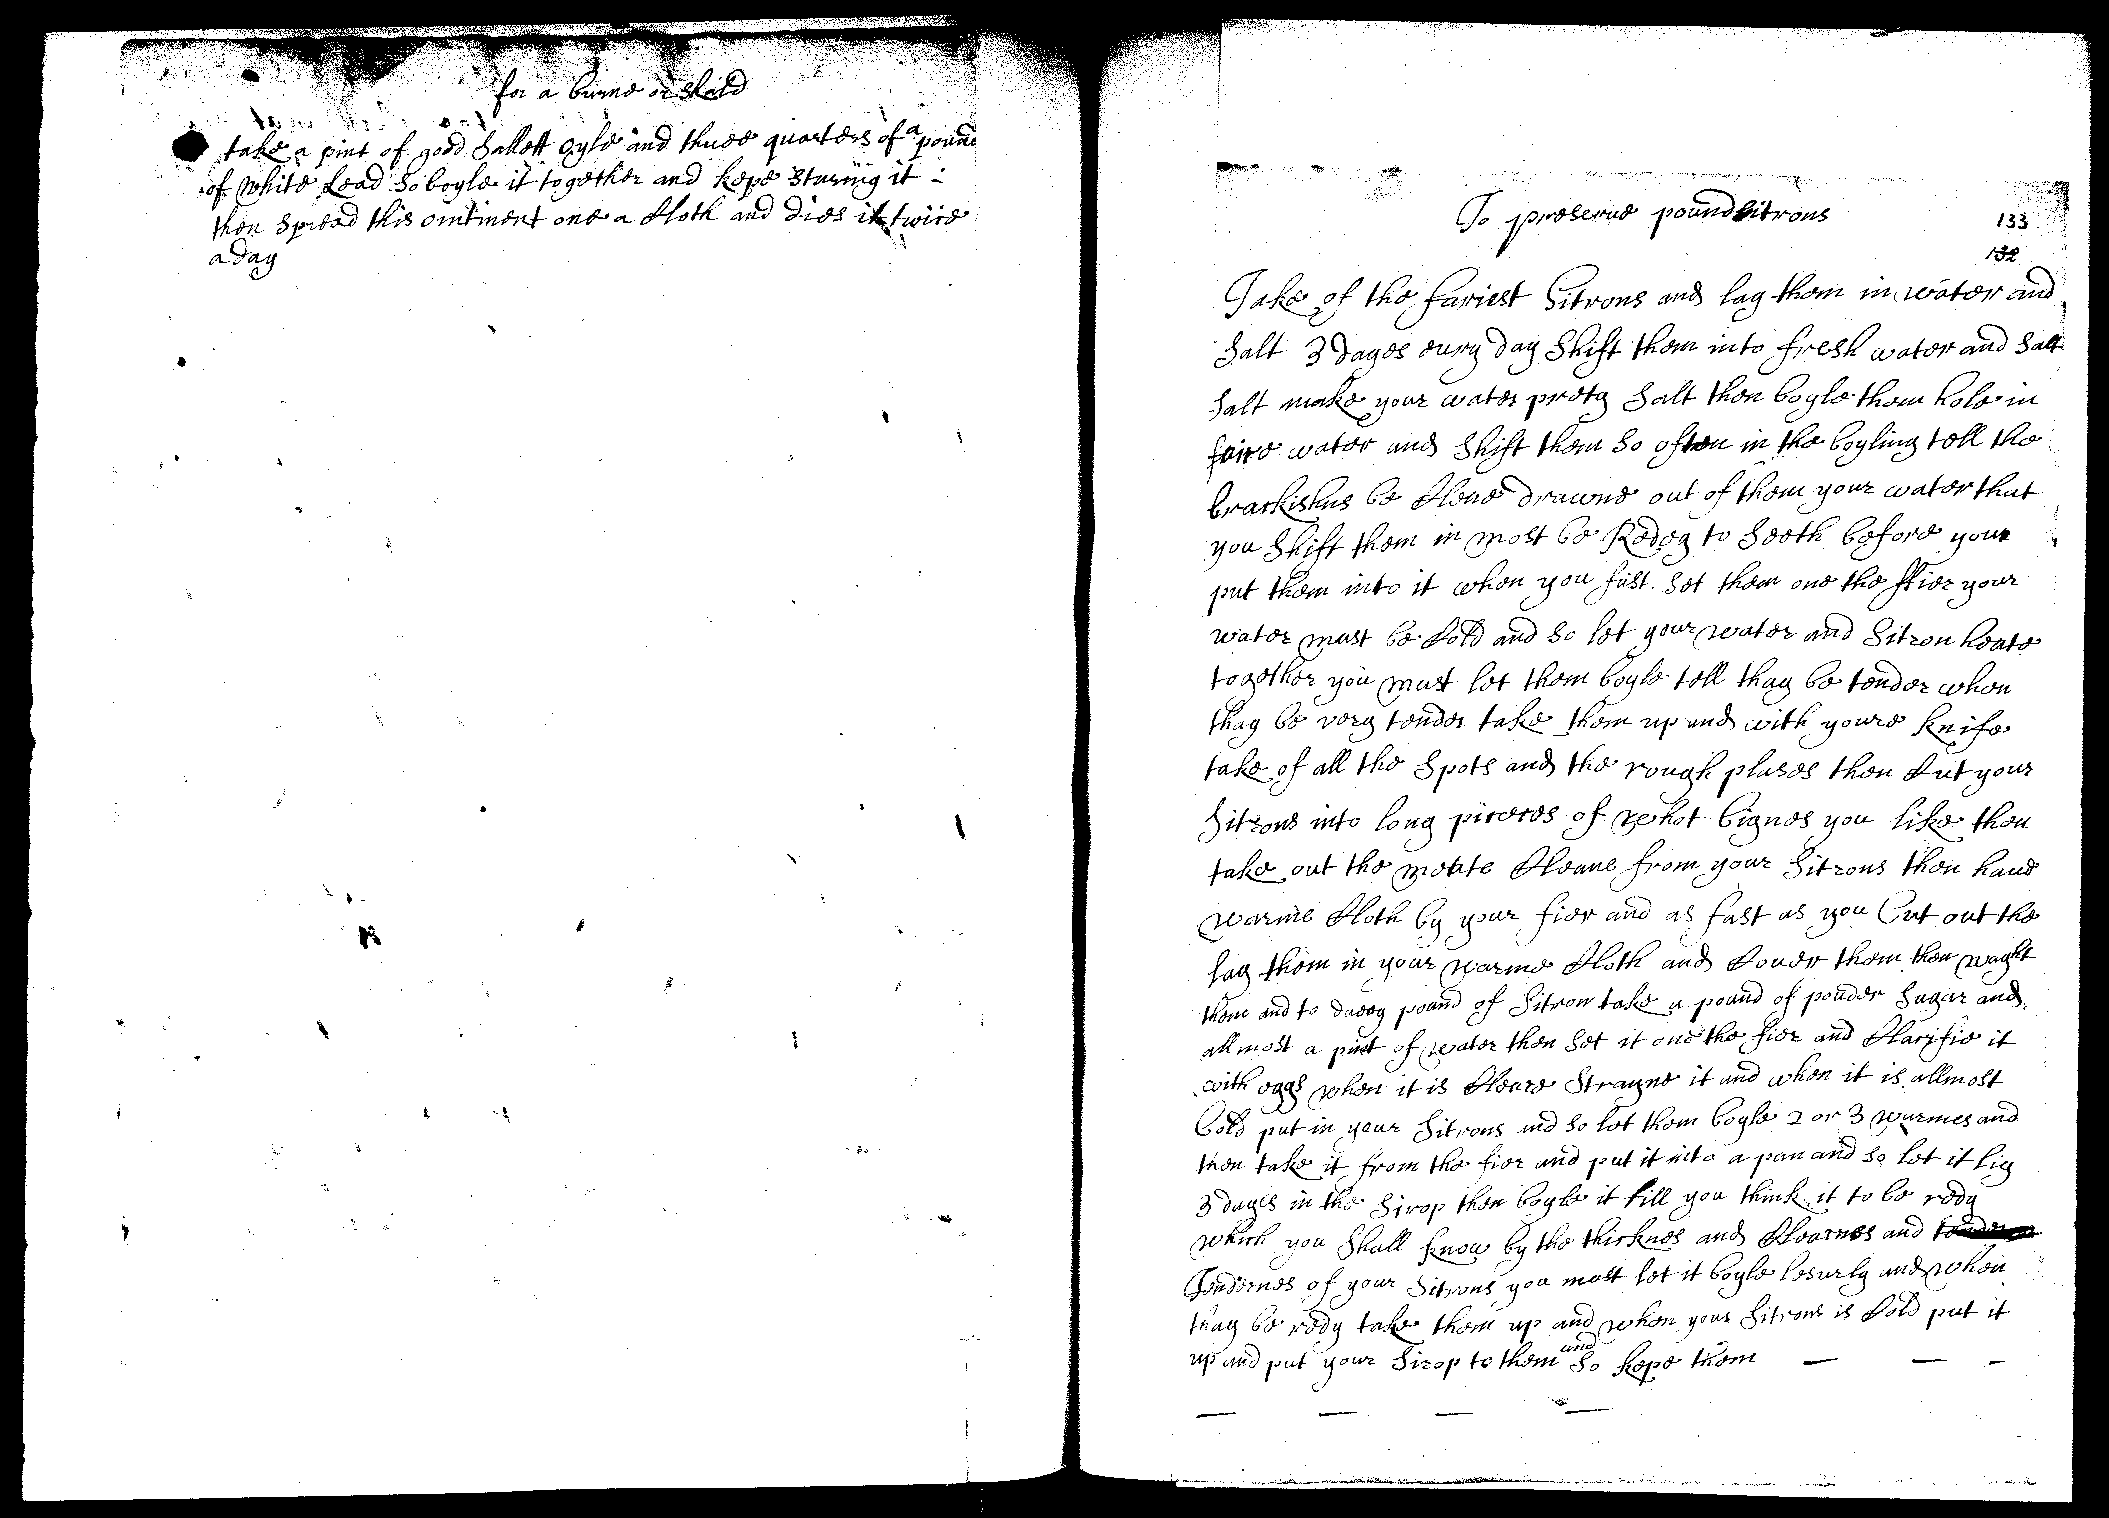 for a burne or skald
take a pint of good Sallett oyle and three quarters of a pound
of white Lead So boyle it together and kepe sturing it :
then spread this ointment one a Cloth and dres it twice
a day
To preserue pound Sitrons
133
132
Take of the fariest Sitrons and lay them in water and
Salt 3 dayes euery day Shift them into fresh water and Salt
Salt make your water prety Salt then boyle them hole in
faire water and Shift them So often in the boyling tell the
brackishnes be Clene drawne out of them your water that
you Shift them in most be Redey to Seeth before your
put them into it when you fust Set them one the ffier your
water must be Cold and So let your water and Sitron heate
together you must let them boyle tell thay be tender when
thay be very tender take them up and with youre knife
take of all the Spots and the rough plases then Cut your
Sitrons into long peceses of whot bignes you like then
take out the meate Cleane from your Sitrons then haue
warme Cloth by your fier and as fast as you Cut out the
lay them in your warme Cloth and Couer them then waght
them and to euery pound of Sitron take a pound of pouder Sugar and
allmost a pint of water then Set it one the fier and Clarifie it
with eggs when it is Cleare Strayne it and when it is allmost
Cold put in your Sitrons and So let them boyle 2 or 3 warmes and
then take it from the fier and put it into a pan and so let it liy
3 dayes in the Sirop then boyle it till you think it to be redy
which you Shall know by the thicknes and Clearnes and
Tendernes of your Sitrons you most let it boyle lesurly and when
thay be redy take them up and when your Sitrons is Cold put it
up and put your Sirop to them and So kepe them